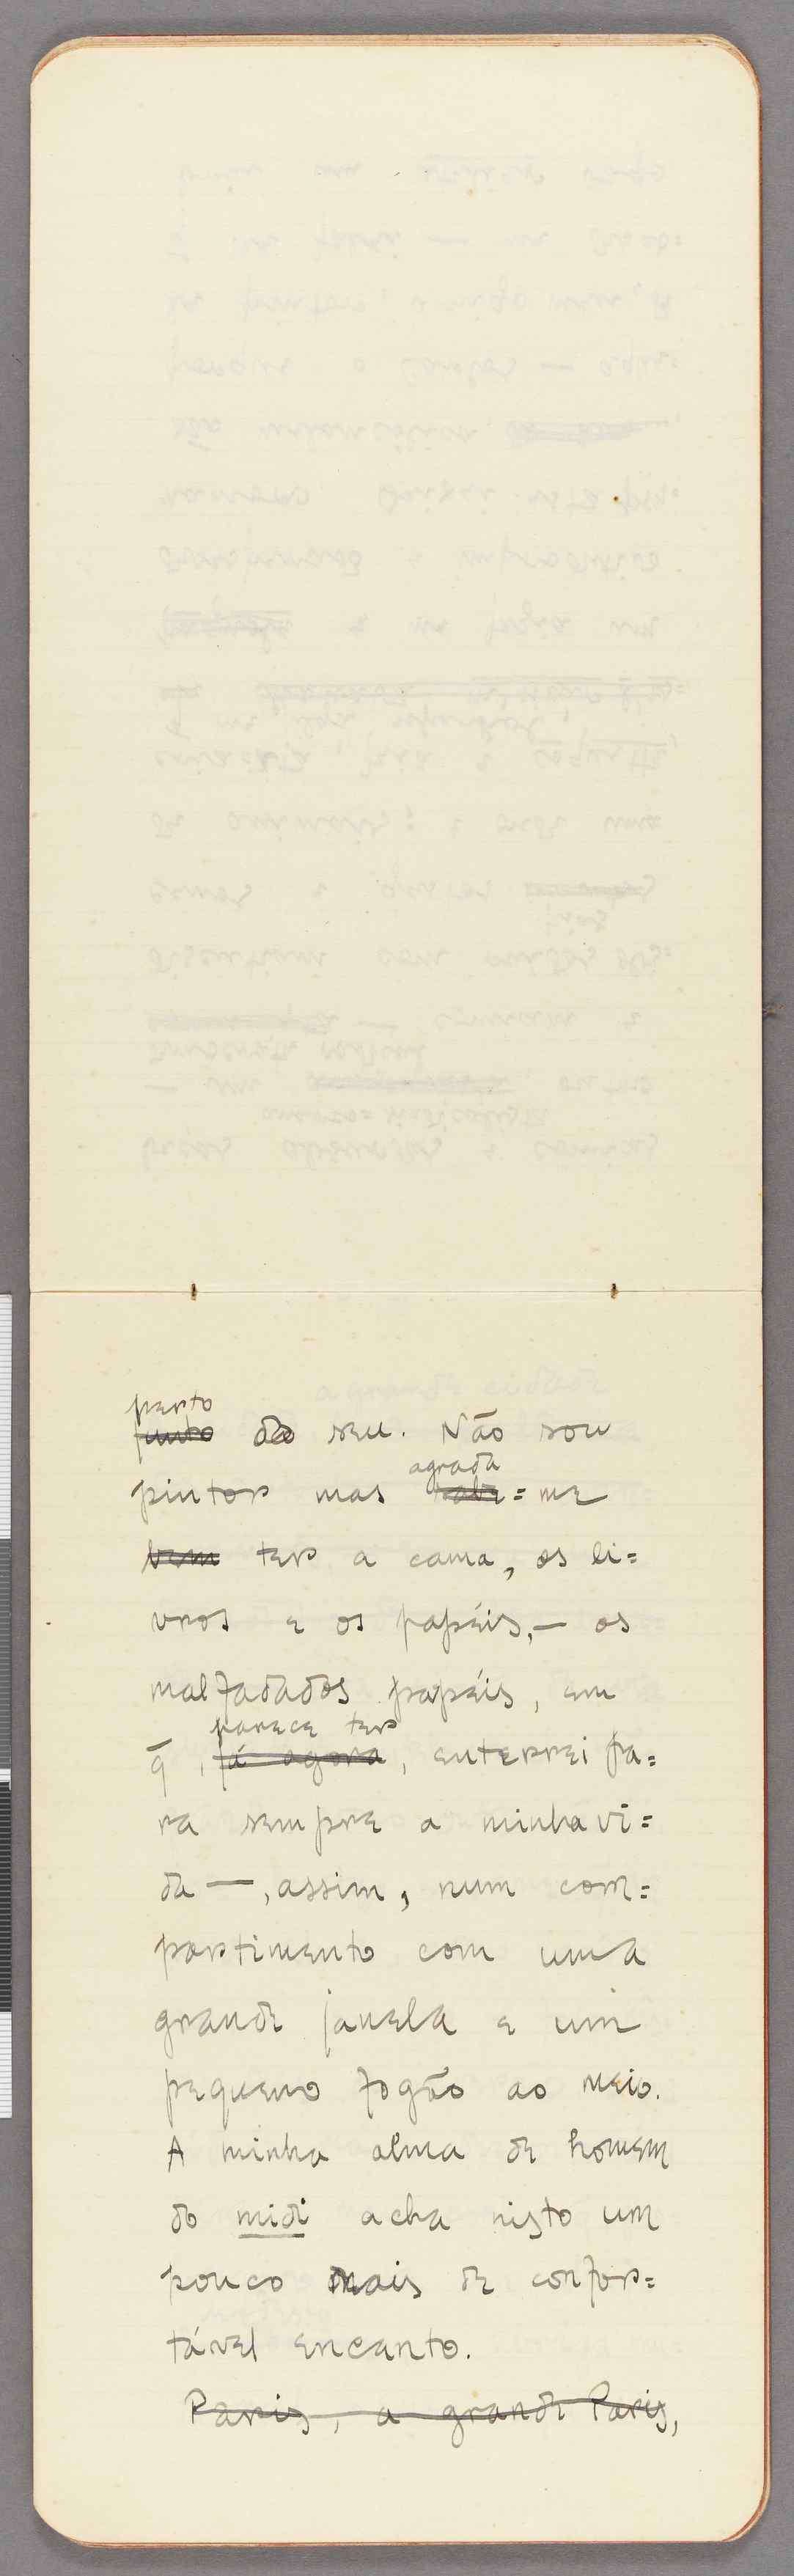 perto
junto do seu. Não sou
agrada
pintor mas sabe=me
bem ter a cama, os li=
vros e os papéis,— os
malfadados papéis, em
parece ter
q̄, já agora, enterrei pa=
ra sempre a minha vi=
da —, assim, num com=
partimento com uma
grande janela e um
pequeno fogão ao meio.
A minha alma de homem
do midi acha nisto um
pouco mais de confor=
tável encanto.
Paris, a grande Paris,